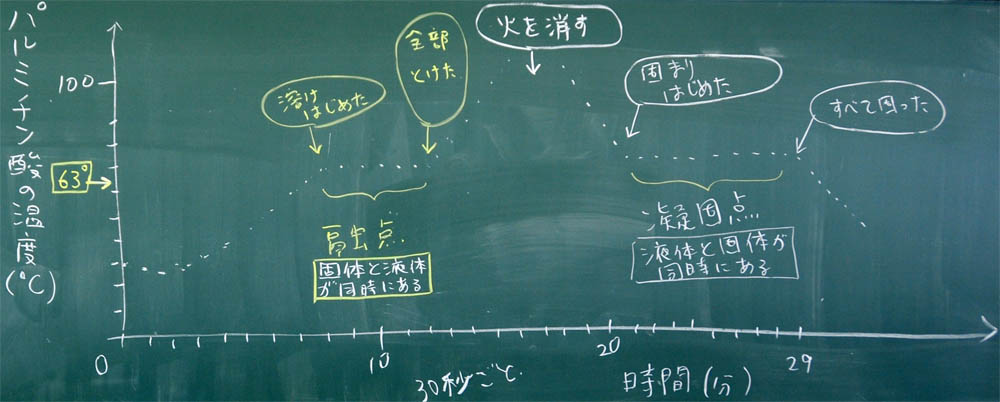 パルミチン酸の温度(℃)
100
63°
0
溶け
はじめた
全部
とけた
火を消す
固まり
はじめた
すべて固った
融点
固体と液体
が同時にある
凝固点
液体と固体が
同時にある
10
20
29
30秒ごと
時間(分)